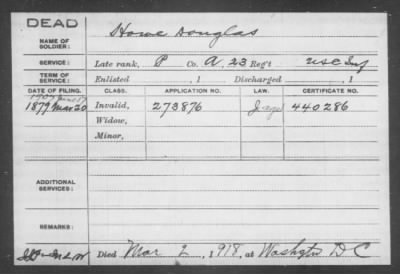 DEAD
NAME OF SOLDIER: Howe Douglas
SERVICE: Late rank, P Co. A, 23 Reg't USC Inf
TERM OF SERVICE: Enlisted , 1 Discharged , 1
DATE OF FILING. CLASS. APPLICATION NO. LAW. CERTIFICATE NO.
1907 June 17
1879 Mar 20 Invalid, 273876 440286
Widow,
Minor,
ADDITIONAL SERVICES:
REMARKS:
Died Mar 2, 1918, at Washgtn D C